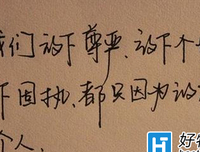 我们放下尊严、放下个
下固执、都只因为放
个人、
好